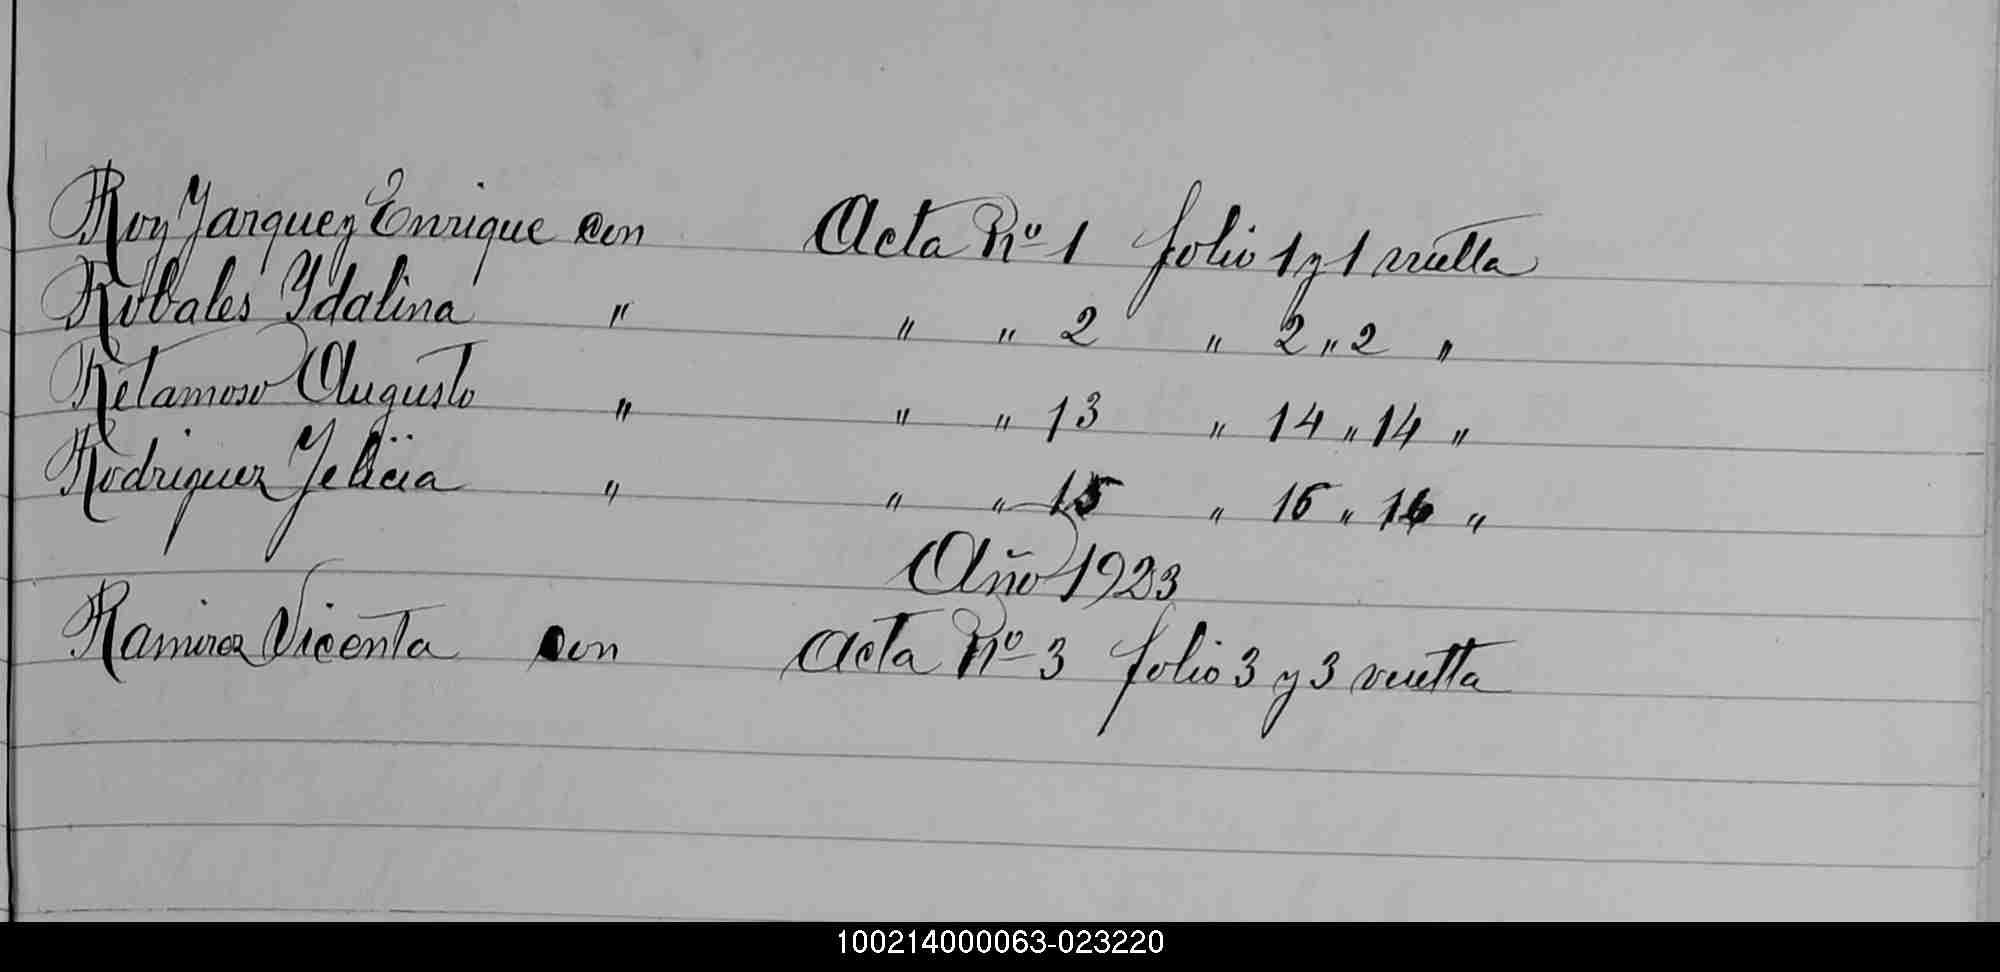 Roy Jarquez Enrique con Acta Nº 1 folio 1 y 1 vuelta
Robales Ydalina " " " 2 " 2 " 2 "
Retamoso Augusto " " " 13 " 14 " 14 "
Rodriguez Felicia " " " 15 " 16 " 16 "
Año 1923
Ramirez Vicenta con Acta Nº 3 folio 3 y 3 vuelta
100214000063-023220